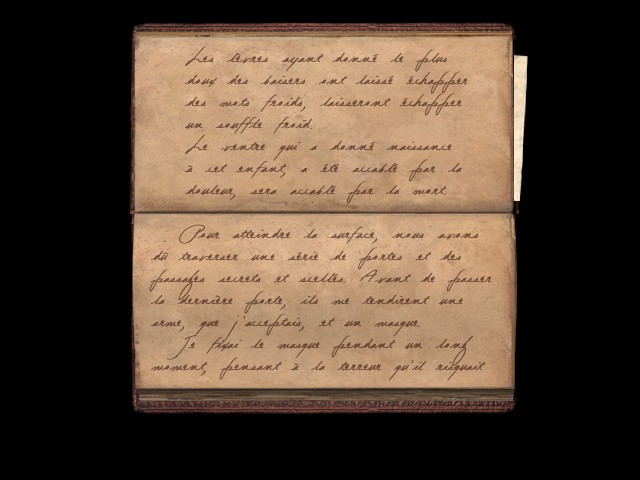 Les lèvres ayant donné le plus
doux des baisers ont laissé échapper
des mots froids, laisseront échapper
un souffle froid.
Le ventre qui a donné naissance
à cet enfant, a été accablé par la
douleur, sera accablé par la mort.
Pour atteindre la surface, nous avons
dû traverser une série de portes et des
passages secrets et scellés. Avant de passer
la dernière porte, ils me tendirent une
arme, que j'acceptais, et un masque.
Je fixai le masque pendant un long
moment, pensant à la terreur qu'il risquait